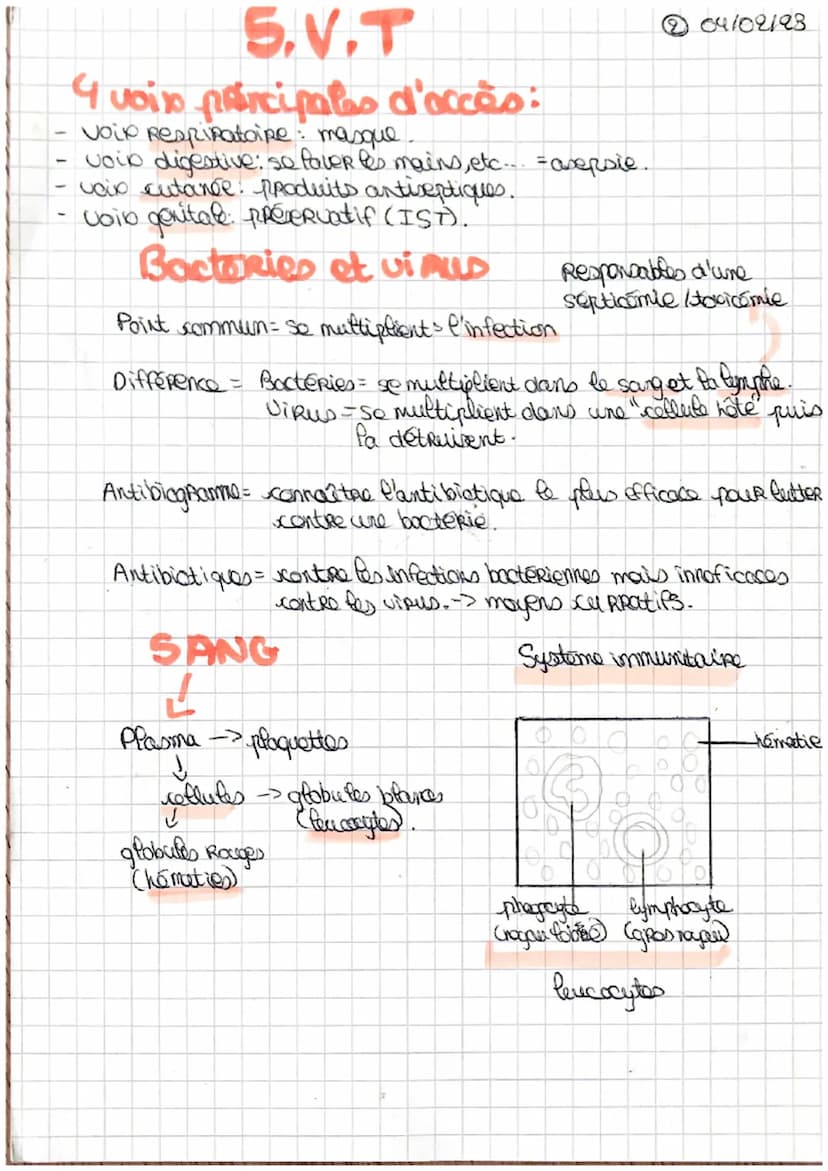 S.V.T
② 04/02/23
4 voies principales d'accès:
- voie respiratoire: masque.
- voie digestive: se laver les mains, etc... = asepsie.
- voie cutanée: produits antiseptiques.
- voie génitale: préservatif (IST).
Bactéries et virus
Responsables d'une
septicémie / toxicémie
Point commun = se multiplient = l'infection
Différence = Bactéries = se multiplient dans le sang et la lymphe.
Virus = se multiplient dans une "cellule hôte" puis
la détruisent.
Antibiogramme = connaître l'antibiotique le plus efficace pour lutter
contre une bactérie.
Antibiotiques = contre les infections bactériennes mais inneficaces
contre les virus. -> moyens curratifs.
SANG
Système immunitaire
Plasma -> plaquettes
cellules -> globules blancs
(leucocytes).
globules rouges
(hématies)
hématie
phagocyte lymphocyte
(noyau lobé) (gros noyau)
leucocytes